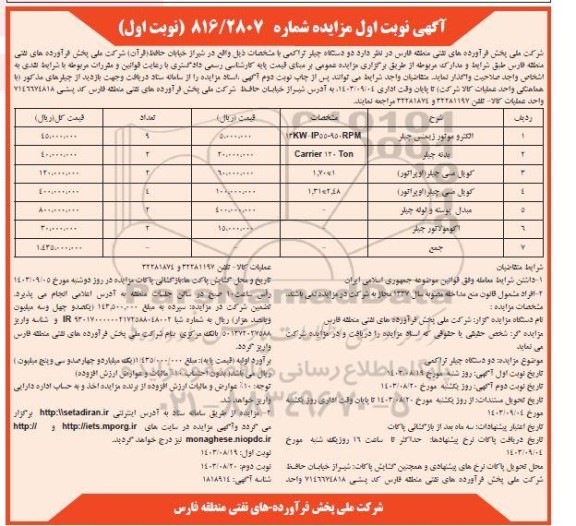 آگهی نوبت اول مزایده شماره ۸۱۶/۲۸۰۷ (نوبت اول)
شرکت ملی پخش فرآورده های نفتی منطقه فارس در نظر دارد دو دستگاه چیلر تراکمی با مشخصات ذیل واقع در شیراز خیابان حافظ(قرآن) شرکت ملی پخش فرآورده های نفتی
منطقه فارس طبق شرایط و مدارک مربوطه از طریق برگزاری مزایده عمومی بر مبنای قیمت پایه کارشناسی رسمی دادگستری با رعایت قوانین و مقررات مربوطه با شرایط نقدی به
اشخاص واجد صلاحیت واگذار نماید. متقاضیان واجد شرایط می توانند پس از چاپ نوبت دوم آگهی ،اسناد مزایده را از سامانه ستاد دریافت وجهت بازدید از چیلرهای مذکور (با
هماهنگی واحد عملیات کالا شرکت) تا پایان وقت اداری ۱۴۰۳/۰۹/۰۴، به آدرس شیراز خیابان حافظ شرکت ملی پخش فرآورده های نفتی منطقه فارس کد پستی ۷۱۴۶۶۷۴۸۱۸
واحد عملیات کالا- تلفن ۳۲۲۸۱۱۹۷ و ۳۲۲۸۱۸۷۴ مراجعه نمایند.
ردیف شرح مشخصات قیمت (ریال) تعداد قیمت کل(ریال)
۱ الکترو موتور زیمنس چیلر ۱۳KW-IP۵۵-۹۵۰RPM ۵,۰۰۰,۰۰۰ ۹ ۴۵,۰۰۰,۰۰۰
۲ بدنه چیلر Carrier ۱۲۰ Ton ۲۰,۰۰۰,۰۰۰ ۲ ۴۰,۰۰۰,۰۰۰
۳ کویل مسی چیلر(اوپراتور) ۱,۷۰×۱ ۶۰,۰۰۰,۰۰۰ ۲ ۱۲۰,۰۰۰,۰۰۰
۴ کویل مسی چیلر(اوپراتور) ۱,۳۱×۲,۴۸ ۱۰۰,۰۰۰,۰۰۰ ۴ ۴۰۰,۰۰۰,۰۰۰
۵ مبدل پوسته و لوله چیلر - ۴۰۰,۰۰۰,۰۰۰ ۲ ۸۰۰,۰۰۰,۰۰۰
۶ آکومولاتور چیلر - ۱۵,۰۰۰,۰۰۰ ۲ ۳۰,۰۰۰,۰۰۰
۷ جمع - - - ۱,۴۳۵,۰۰۰,۰۰۰
شرایط متقاضیان
۱-داشتن شرایط معامله وفق قوانین موضوعه جمهوری اسلامی ایران
۲-افراد مشمول قانون منع مداخله مصوبه سال ۱۳۳۷ مجاز به شرکت در مزایده نمی باشند.
مشخصات مزایده :
نام دستگاه مزایده گزار: شرکت ملی پخش فرآورده های نفتی منطقه فارس
مزایده گر: شخص حقیقی یا حقوقی که اسناد مزایده را دریافت و در مزایده شرکت
می نماید
موضوع مزایده: دو دستگاه چیلر تراکمی
تاریخ نوبت اول آگهی: روز شنبه مورخ ۱۴۰۳/۰۸/۱۹
تاریخ نوبت دوم آگهی: روز یکشنبه مورخ ۱۴۰۳/۰۸/۲۰
تاریخ تحویل مستندات: از روز یکشنبه مورخ ۱۴۰۳/۰۸/۲۰ تا پایان وقت اداری روز یکشنبه
مورخ ۱۴۰۳/۰۹/۰۴
تاریخ اعتبار پیشنهادات: سه ماه بعد از بازگشائی پاکات
تاریخ دریافت پاکات نرخ پیشنهادها: حداکثر تا ساعت ۱۶ روزیکشنبه مورخ
۱۴۰۳/۰۹/۰۴
محل تحویل پاکات نرخ های پیشنهادی و همچنین گشایش پاکات: شیراز خیابان حافظ
شرکت ملی پخش فرآورده های نفتی منطقه فارس کد پستی ۷۱۴۶۶۷۴۸۱۸ واحد
عملیات کالا- تلفن ۳۲۲۸۱۱۹۷ و ۳۲۲۸۱۸۷۴
تاریخ و محل گشایش پاکت ها:بازگشائی پاکات مزایده در روز دوشنبه مورخ ۱۴۰۳/۰۹/۰۵
راس ساعت۱۰ صبح در سالن جلسات منطقه به آدرس اعلامی انجام می پذیرد.
تضمین شرکت در مزایده: سپرده به مبلغ ۱۴۳,۵۰۰,۰۰۰ ریال (یکصدو چهل وسه میلیون
وپانصد هزار) ریال
واریز گردد.
برآورد اولیه (قیمت پایه): مبلغ ۱,۴۳۵,۰۰۰,۰۰۰(یک میلیاردو چهارصدو سی و پنج میلیون)
ریال می باشد
توجه: ۱۰٪ عوارض و مالیات ارزش افزوده از برنده مزایده اخذ و به حساب اداره دارایی
واریز خواهد شد.
۳-مزایده از طریق سامانه ستاد به آدرس اینترنتی http:\\setadiran.ir برگزار
می گردد وآگهی مزایده در سایت های http://iets.mporg.ir و http://
monaghese.niopdc.ir نیز درج خواهد گردید.
نوبت اول: ۱۴۰۳/۰۸/۱۹
نوبت دوم: ۱۴۰۳/۰۸/۲۰
شناسه آگهی: ۱۸۱۸۹۱۴
شرکت ملی پخش فرآورده-های نفتی منطقه فارس